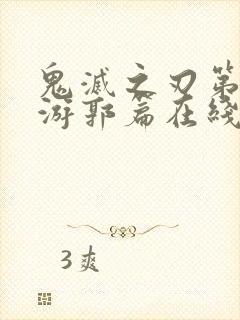 鬼滅之刃第
游郭篇在綫
3爽